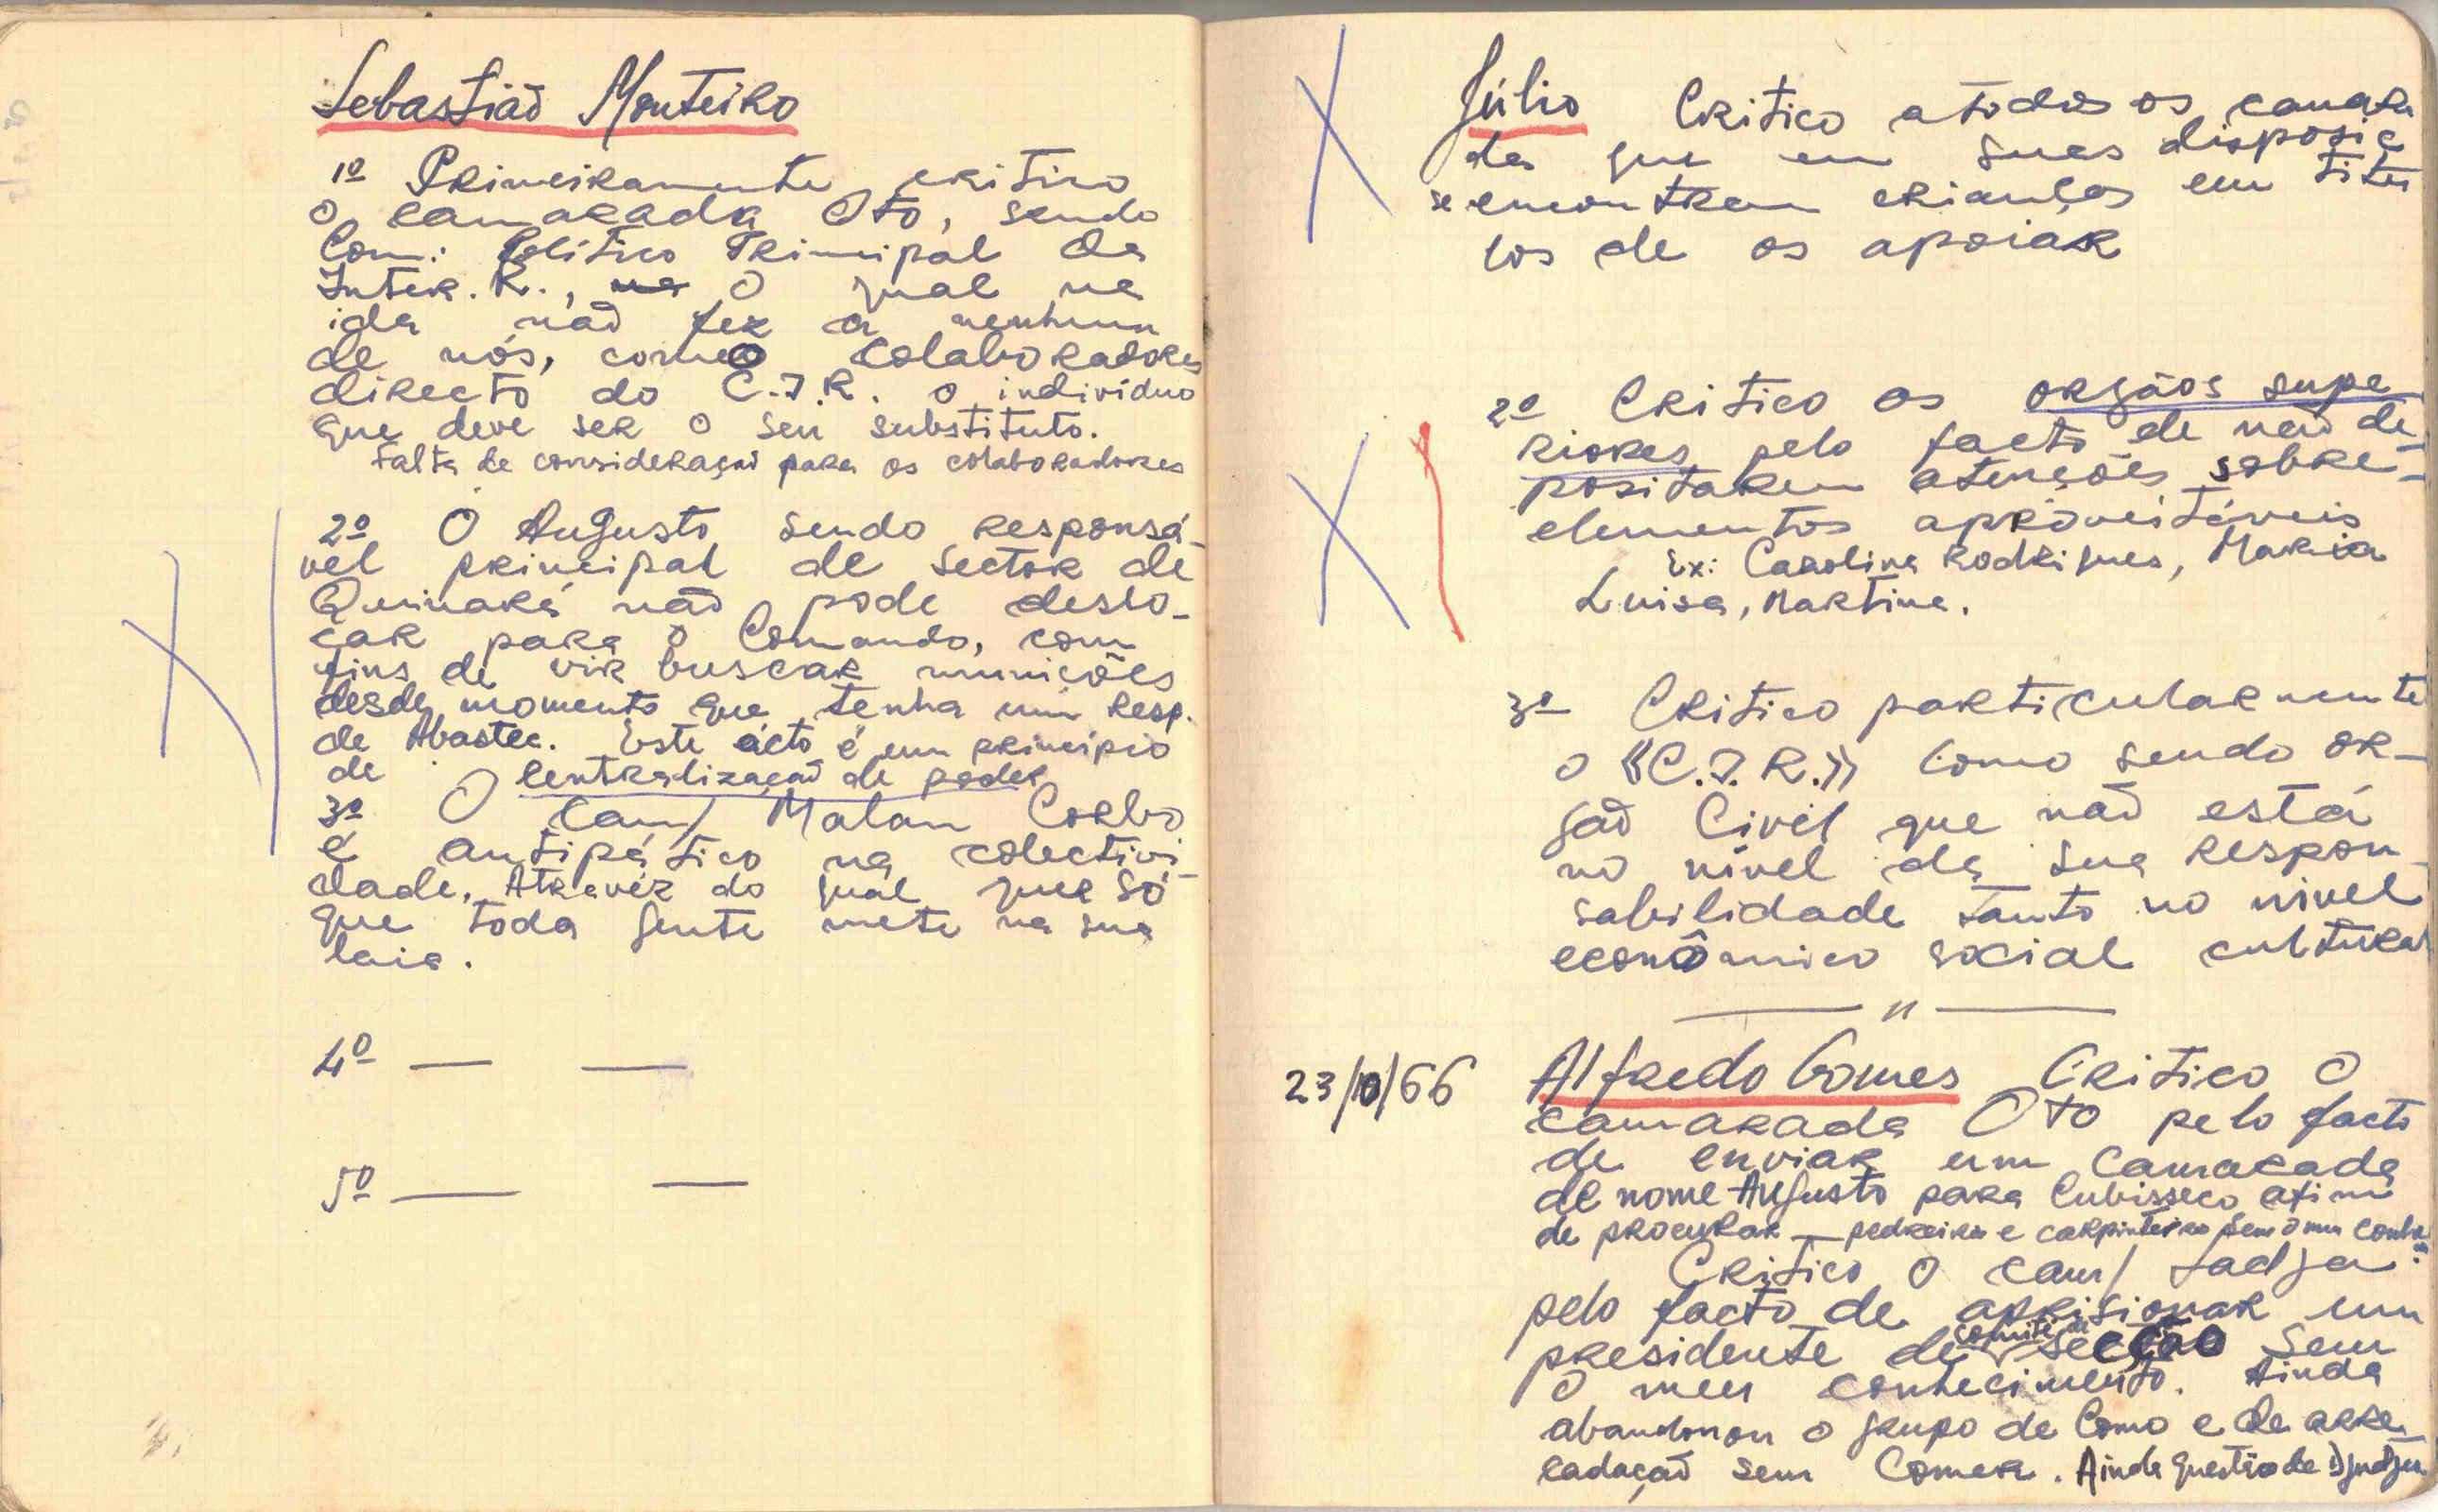 Sebastiaõ Monteiro
1º Primeiramente critico
o camarada Oto, sendo
Com: Político Principal da
Inter. R., na o qual na
ida naõ fez a nenhum
de nós, como colaboradores
directo do C.I.R. o indivíduo
que deve ser o seu substituto.
Falta de consideraçaõ para os colaboradores
2º O Augusto sendo responsá-
vel principal de sector de
Quinará naõ pode deslo-
car para o Comando, com
fins de vir buscar munições
desde momento que tenha um resp.
de Abastec. Este acto é um princípio
de centralizaçaõ de poder
3º O cam/ Malam Corbo
é antipático na colectivi-
dade. Atravéz do qual quer só
que toda gente mete na sua
laia.
4º — —
5º — —
Júlio Critico a todos os camara
das que em suas disposiç
se encontram crianças em títu
los de os apoiar
2º Critico os orgãos supe-
riores pelo facto de naõ de-
positarem atenções sobre-
elementos aproveitáveis
Ex: Carolina Rodrigues, Maria
Luisa, Martina.
3º Critico particularmente
o «C.I.R.» como sendo or-
gaõ Civil que naõ está
no nível da sua respon-
sabilidade tanto no nivel
econômico social cultural
— " —
23/10/66 Alfredo Gomes Critico o
camarada Oto pelo facto
de enviar um camarada
de nome Augusto para Cubisseco afim
de procurar — pedreiro e carpinteiro sem o meu conhe
Critico o cam/ Fadja
pelo facto de aprisionar um
presidente de comité de secção sem
o meu conhecimento. Ainda
abandonou o grupo de Como e de arre-
cadaçaõ sem comer. Ainda questão de